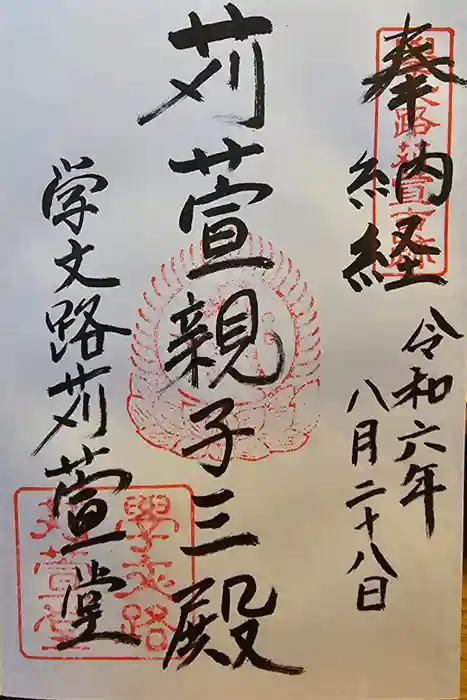 奉納経
令和六年
八月二十八日
苅萱親子三殿
学文路苅萱堂
學文路
苅萱堂